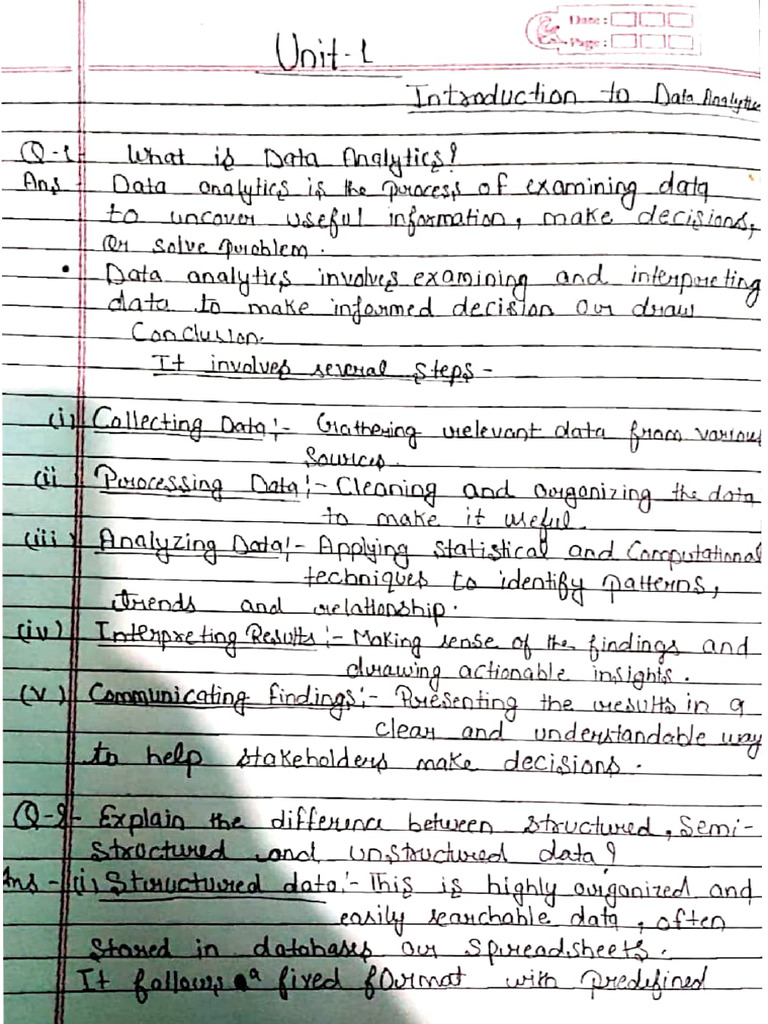 Date :
Page :
Unit-1
Introduction to Data Analytics
Q-1 What is Data Analytics?
Ans - Data analytics is the process of examining data
to uncover useful information, make decisions,
or solve problem.
• Data analytics involves examining and interpreting
data to make informed decision or draw
Conclusion.
It involves several steps -
(i) Collecting Data :- Gathering relevant data from various
sources.
(ii) Processing Data :- Cleaning and organizing the data
to make it useful.
(iii) Analyzing Data :- Applying statistical and Computational
techniques to identify patterns,
trends and relationship.
(iv) Interpreting Results :- Making sense of the findings and
drawing actionable insights.
(v) Communicating findings :- Presenting the results in a
clear and understandable way
to help stakeholders make decisions.
Q-2- Explain the difference between structured, Semi-
structured and unstructured data?
Ans - (i) Structured data :- This is highly organized and
easily searchable data, often
stored in databases or spreadsheets.
It follows a fixed format with predefined